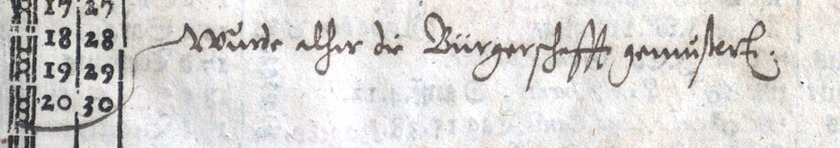 17 27
18 28 Wurde alhir die Bürgerschafft gemustert.
19 29
20 30